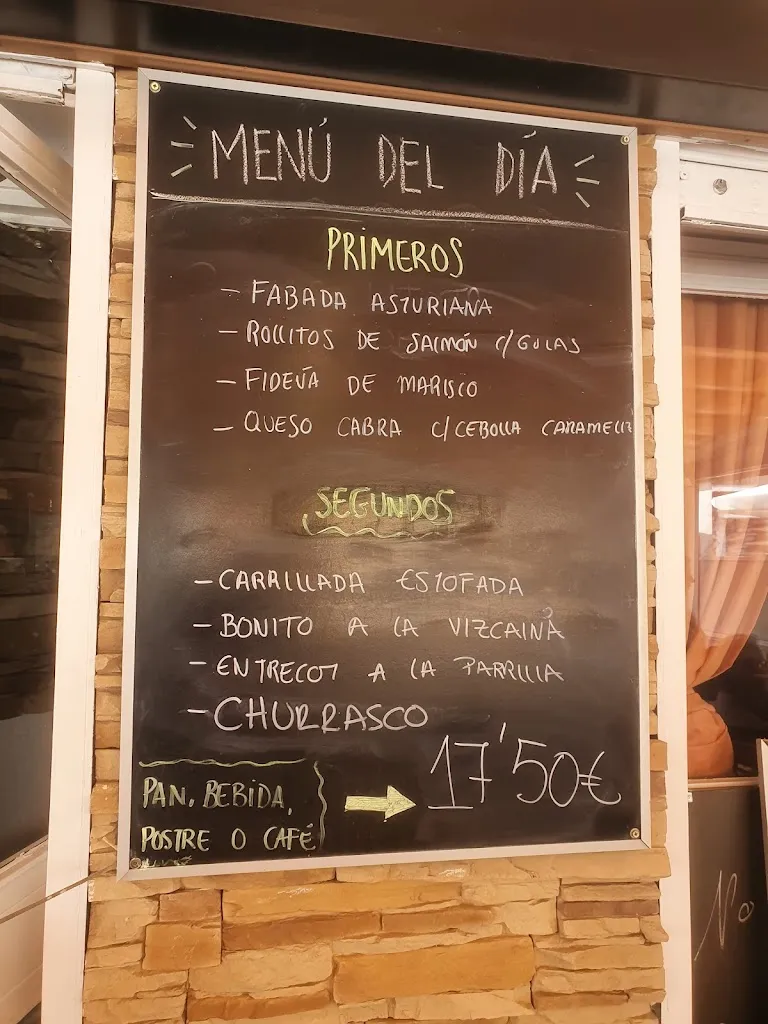 MENÚ DEL DÍA
PRIMEROS
- FABADA ASTURIANA
- ROLLITOS DE SALMÓN C/GULAS
- FIDEUÁ DE MARISCO
- QUESO CABRA C/CEBOLLA CARAMELIZ
SEGUNDOS
- CARRILLADA ESTOFADA
- BONITO A LA VIZCAINA
- ENTRECOT A LA PARRILLA
- CHURRASCO
PAN, BEBIDA,
POSTRE O CAFÉ
17'50€
No